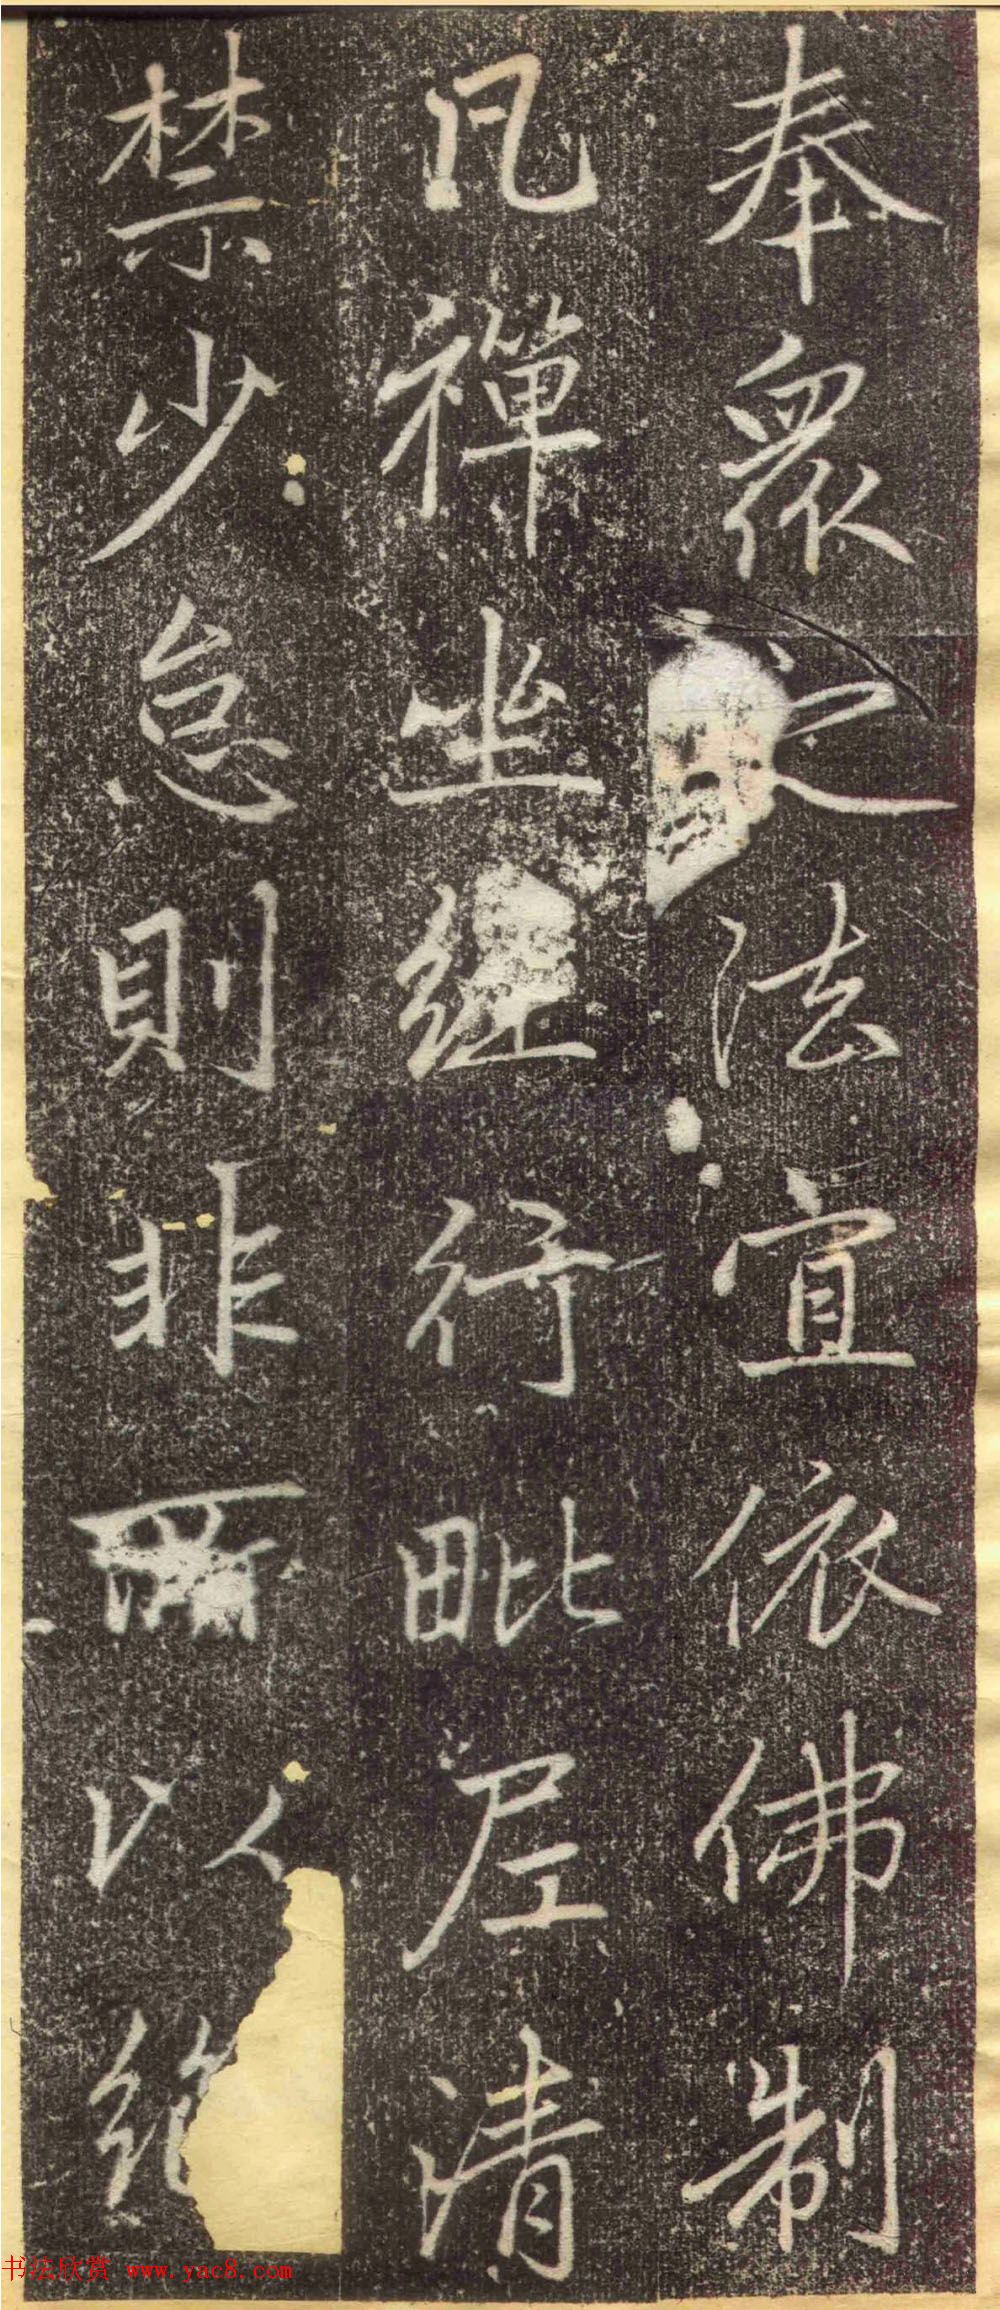 奉衆之法宜依佛制
凡禪坐經行毗尼清
禁少怠則非所以
书法欣赏 www.yac8.com